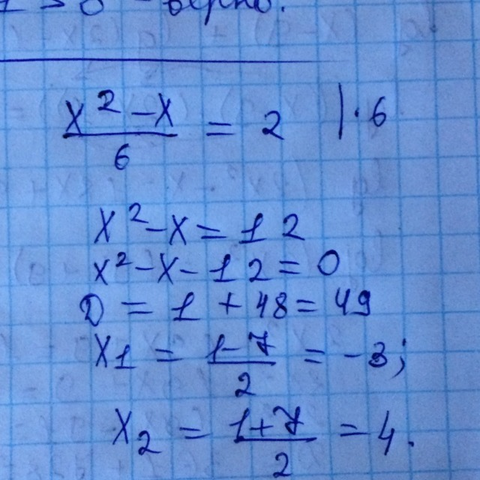 1 > 0 - верно.
x² - x / 6 = 2 | · 6
x² - x = 12
x² - x - 12 = 0
D = 1 + 48 = 49
x1 = 1-7 / 2 = -3;
x2 = 1+7 / 2 = 4.